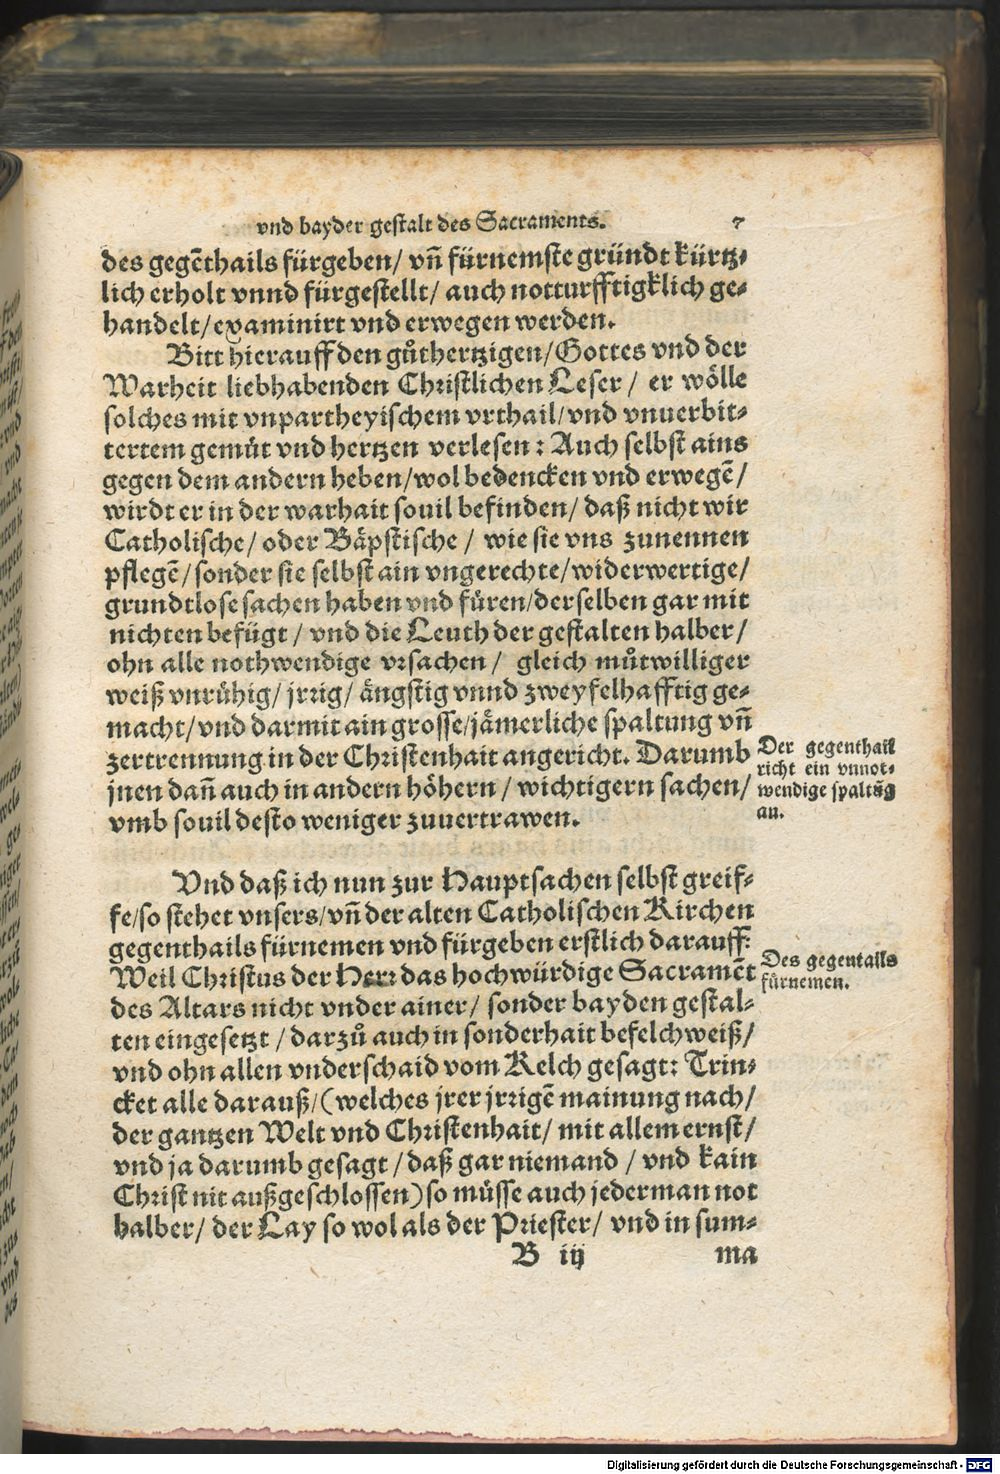 vnd bayder gestalt des Sacraments. 7
des gegēthails fürgeben/ vñ fürnemste gründt kürtz-
lich erholt vnnd fürgestellt/ auch notturfftigklich ge-
handelt/ examinirt vnd erwegen werden.
Bitt hierauff den gůthertzigen/ Gottes vnd der
Warheit liebhabenden Christlichen Leser/ er wölle
solches mit vnpartheyischem vrthail/ vnd vnuerbit-
tertem gemüt vnd hertzen verlesen: Auch selbst ains
gegen dem andern heben/ wol bedencken vnd erwegē/
wirdt er in der warhait souil befinden/ daß nicht wir
Catholische/ oder Bäpstische/ wie sie vns zunennen
pflegē/ sonder sie selbst ain vngerechte/ widerwertige/
grundtlose sachen haben vnd füren/ derselben gar mit
nichten befügt/ vnd die Leuth der gestalten halber/
ohn alle nothwendige vrsachen/ gleich můtwilliger
weiß vnrühig/ jrrig/ ängstig vnnd zweyfelhafftig ge-
macht/ vnd darmit ain grosse/ jämerliche spaltung vñ
zertrennung in der Christenhait angericht. Darumb
jnen dañ auch in andern höhern/ wichtigern sachen/
vmb souil desto weniger zuuertrawen.
Der gegenthail
richt ein vnnot-
wendige spaltūg
an.
Vnd daß ich nun zur Hauptsachen selbst greif-
fe/ so stehet vnsers/ vñ der alten Catholischen Kirchen
gegenthails fürnemen vnd fürgeben erstlich darauff:
Weil Christus der Herr das hochwürdige Sacramēt
des Altars nicht vnder ainer/ sonder bayden gestal-
ten eingesetzt/ darzů auch in sonderhait befelchweiß/
vnd ohn allen vnderschaid vom Kelch gesagt: Trin-
cket alle darauß/ (welches jrer jrrigē mainung nach/
der gantzen Welt vnd Christenhait/ mit allem ernst/
vnd ja darumb gesagt/ daß gar niemand/ vnd kain
Christ nit außgeschlossen) so müsse auch jederman not
halber/ der Lay so wol als der Priester/ vnd in sum-
Des gegentails
fürnemen.
B iij ma
Digitalisierung gefördert durch die Deutsche Forschungsgemeinschaft - DFG